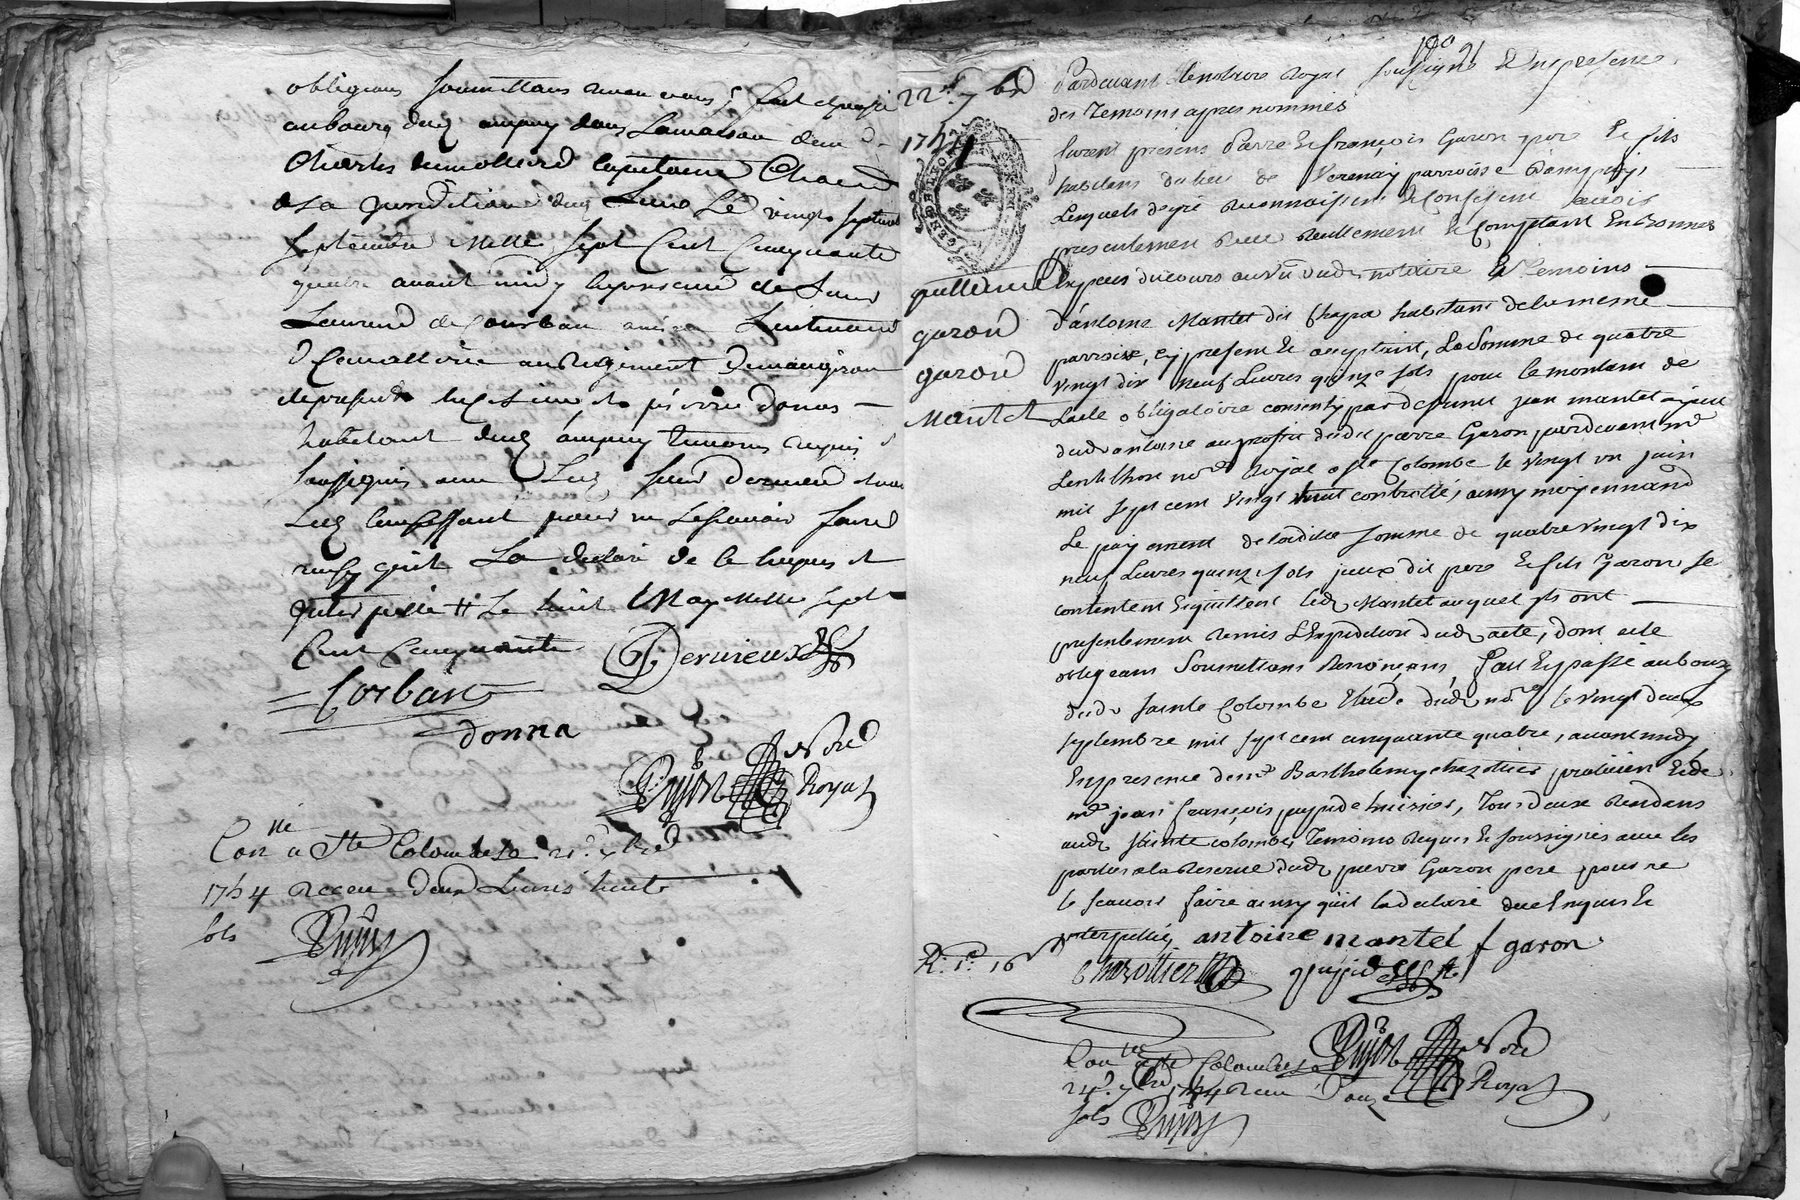 obligeans soumettans renonceans &c fait et passé
au bourg dud ampuy dans la maison dem d
Charles demollierd capitaine Chatelain
de la jurisdiction dud Lieu Le vingt sept
septembre Mille sept Cent Cinquante
quatre avant midy en presence de Sieur
Laurend de Courban ancien Lieutenant
d Cavallerie au Regiment
de present aud Lieu et pierre donna
habitant dud ampuy temoins requis
soussignés avec Led sieur dervieu
Led pour ne sçavoir faire
ainsy qu'il La declaré de ce enquis et
interpellé Le huit May Mille sept
Cent Cinquante Dervieux
Corban
donna
Pujon Nore
Royal
Con lle a Ste Colombe le 7 bre
1754 Receu deux Livres huit
sols Pujon
190 91
22e 7 bre
1754
GEN DE LYON
quittance
garon
garon
Mantel
Pardevant Le notaire Royal soussigné Et en presence
des Temoins apres nommés
furent presens Pierre Et françois Garon pere Et fils
habitans du lieu de Verenay parroisse Dampuys
Lesquels de gré Reconnoissent Et Confessent avoir
presentement Receu Reellement Et Comptant En bonnes
Especes du cours au vu dud notaire Et Temoins
d'antoine Mantel dit Chapa habitant de la meme
parroisse, cy present Et acceptant, La Somme de quatre
vingt dix neuf Livres quinze sols pour le montant de
lacte obligatoire consenty par deffunct jean mantel ayeul
dud antoine au proffit dudit pierre Garon pardevant me
Lentilhon nore Royal a ste Colombe le vingt un juin
mil sept cent vingt huit controllé, au moyennand
Le payement de ladite somme de quatre vingt dix
neuf Livres quinze sols jceux dit pere Et fils Garon, se
contentent Et quittent led Mantel auquel jls ont
presentement Remis L'Expedition dud acte, dont acte
obligeans Soumettans Renonçans, fait Et passé au bourg
dud sainte Colombe Etude dud nore le vingt deux
septembre mil sept cent cinquante quatre, avant midy
En presence de me Barthelemy chazottier praticien Et de
me jean françois pupide huissier, Tous deux Residens
aud sainte colombe, Temoins Requis Et soussignés avec les
parties a la Reserve dud pierre Garon pere pour ne
le sçavoir faire ainsy quil la declaré de ce Enquis Et
interpellé, antoine mantel f garon
R. 1. 16
Chazottier pupide
Pujon Nore
Royal
Con lle a Ste Colombe le
24e 7 bre 1754 Receu Douze
sols Pujon